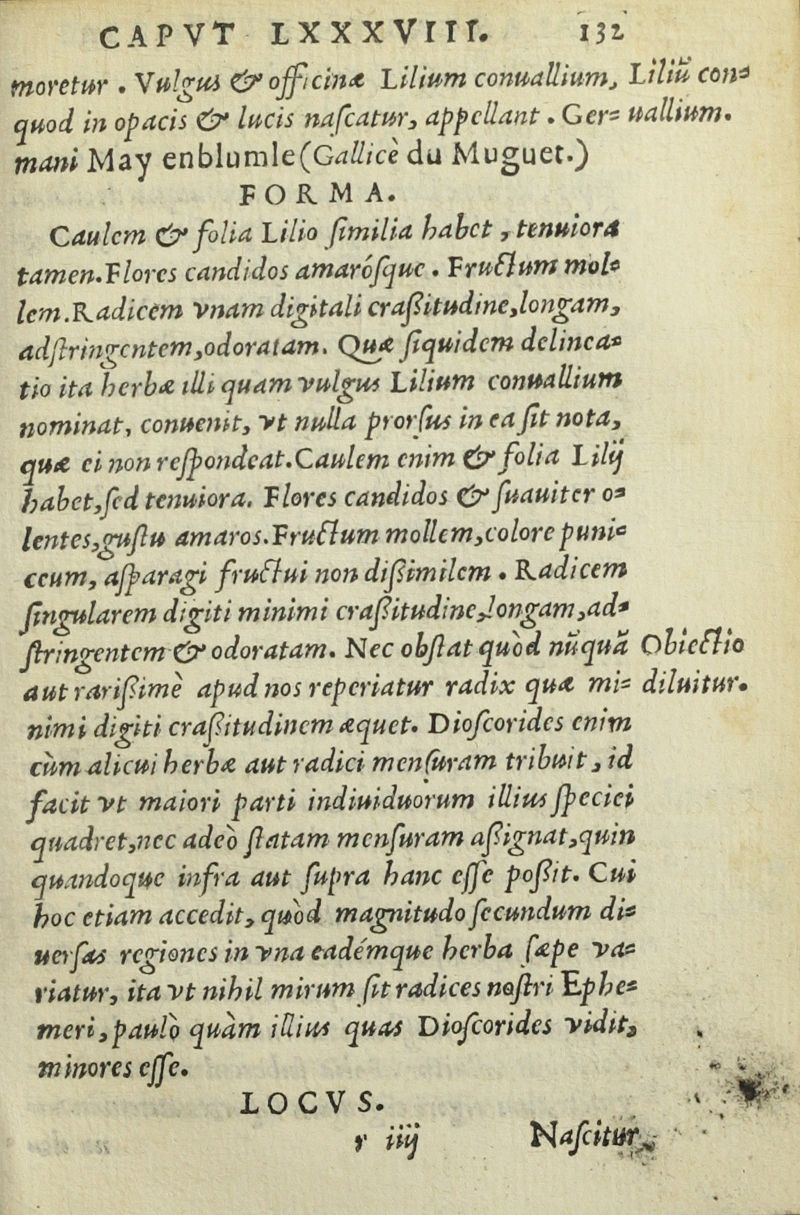 CAPVT LXXXVIII. 132
moretur . Vulgus & officinæ Lilium conuallium, Liliũ con=
quod in opacis & lucis naſcatur, appellant . Ger= uallium.
mani May enblumle (Gallicè du Muguet.)
FORMA.
Caulem & folia Lilio ſimilia habet , tenuiora
tamen. Flores candidos amaróſque . Fructum mol=
lem. Radicem vnam digitali craßitudine, longam,
adſtringentem, odoratam. Quæ ſiquidem delinea=
tio ita herbæ illi quam vulgus Lilium conuallium
nominat, conuenit, vt nulla prorſus in ea ſit nota,
quæ ei non reſpondeat. Caulem enim & folia Lilij
habet, ſed tenuiora. Flores candidos & ſuauiter o=
lentes, guſtu amaros. Fructum mollem, colore puni=
ceum, aſparagi fructui non dißimilem . Radicem
ſingularem digiti minimi craßitudine, longam, ad=
ſtringentem & odoratam. Nec obſtat quòd nũquã Obiectio
aut rarißimè apud nos reperiatur radix quæ mi= diluitur.
nimi digiti craßitudinem æquet. Dioſcorides enim
cùm alicui herbæ aut radici menſuram tribuit , id
facit vt maiori parti indiuiduorum illius ſpeciei
quadret, nec adeò ſtatam menſuram aßignat, quin
quandoque infra aut ſupra hanc eſſe poßit. Cui
hoc etiam accedit, quòd magnitudo ſecundum di=
uerſas regiones in vna eadémque herba ſæpe va=
riatur, ita vt nihil mirum ſit radices noſtri Ephe=
meri, paulò quàm illius quas Dioſcorides vidit,
minores eſſe.
LOCVS.
r iiij Naſcitur